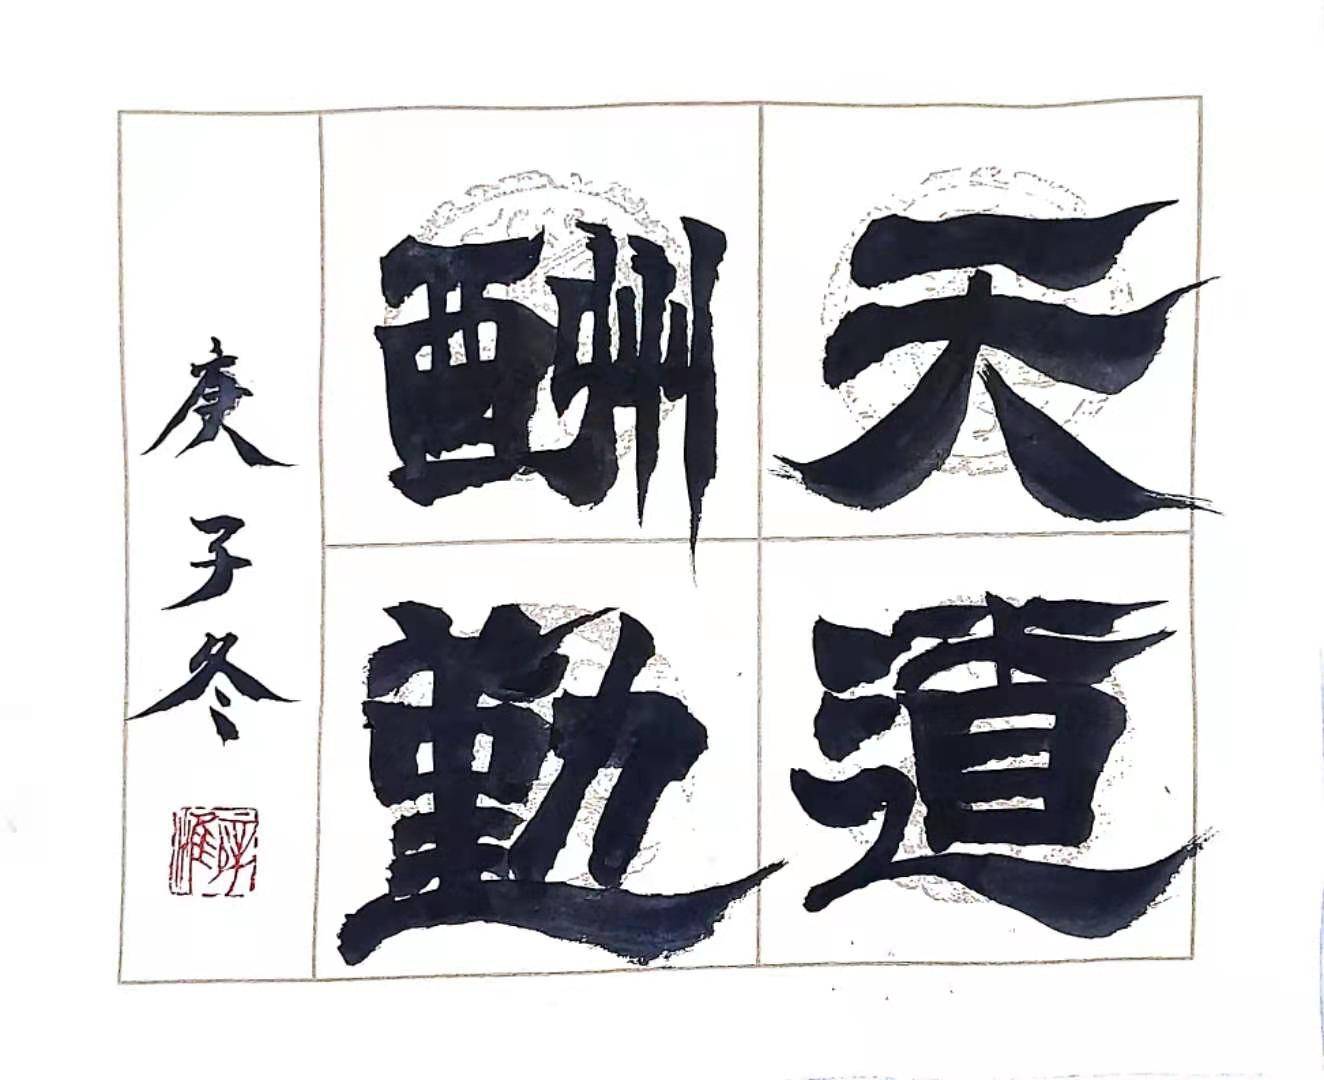 天道
酬勤
庚子冬